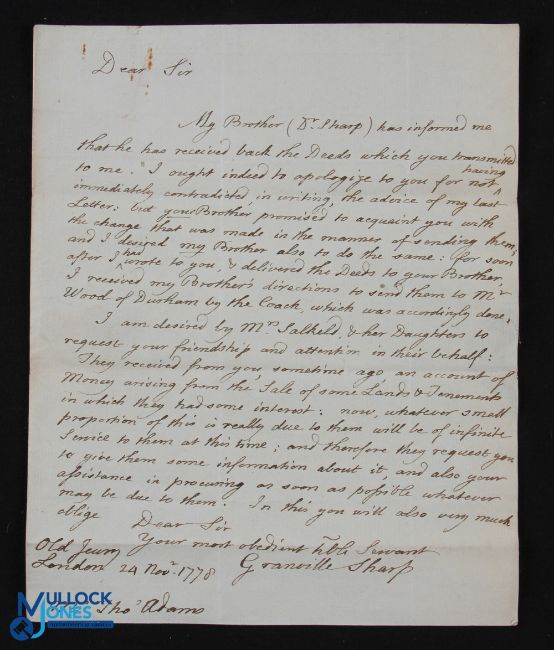 Dear Sir
My Brother (Dr. Sharp) has informed me
that he has received back the Deeds which you transmitted
to me. I ought indeed to apologize to you for not having
immediately contradicted, in writing, the advice of my last
Letter: but your Brother promised to acquaint you with
the change that was made in the manner of sending them;
and I desired my Brother also to do the same: for soon
after I had wrote to you, & delivered the Deeds to your Brother,
I received my Brother's directions to send them to Mr
Wood of Durham by the Coach, which was accordingly done.
I am desired by Mrs. Salkeld, & her Daughters to
request your friendship and attention in their behalf:
They received from you, sometime ago an account of
Money arising from the Sale of some Lands & Tenements
in which they had some interest: now, whatever small
proportion of this is really due to them will be of infinite
Service to them at this time; and therefore they request you
to give them some information about it, and also your
assistance in procuring as soon as possible whatever
may be due to them. In this you will also very much
oblige
Dear Sir
Your most obedient hble Servant
Granville Sharp
Old Jewry
London 24 Novr. 1778
Thos Adams
MULLOCK
JONES